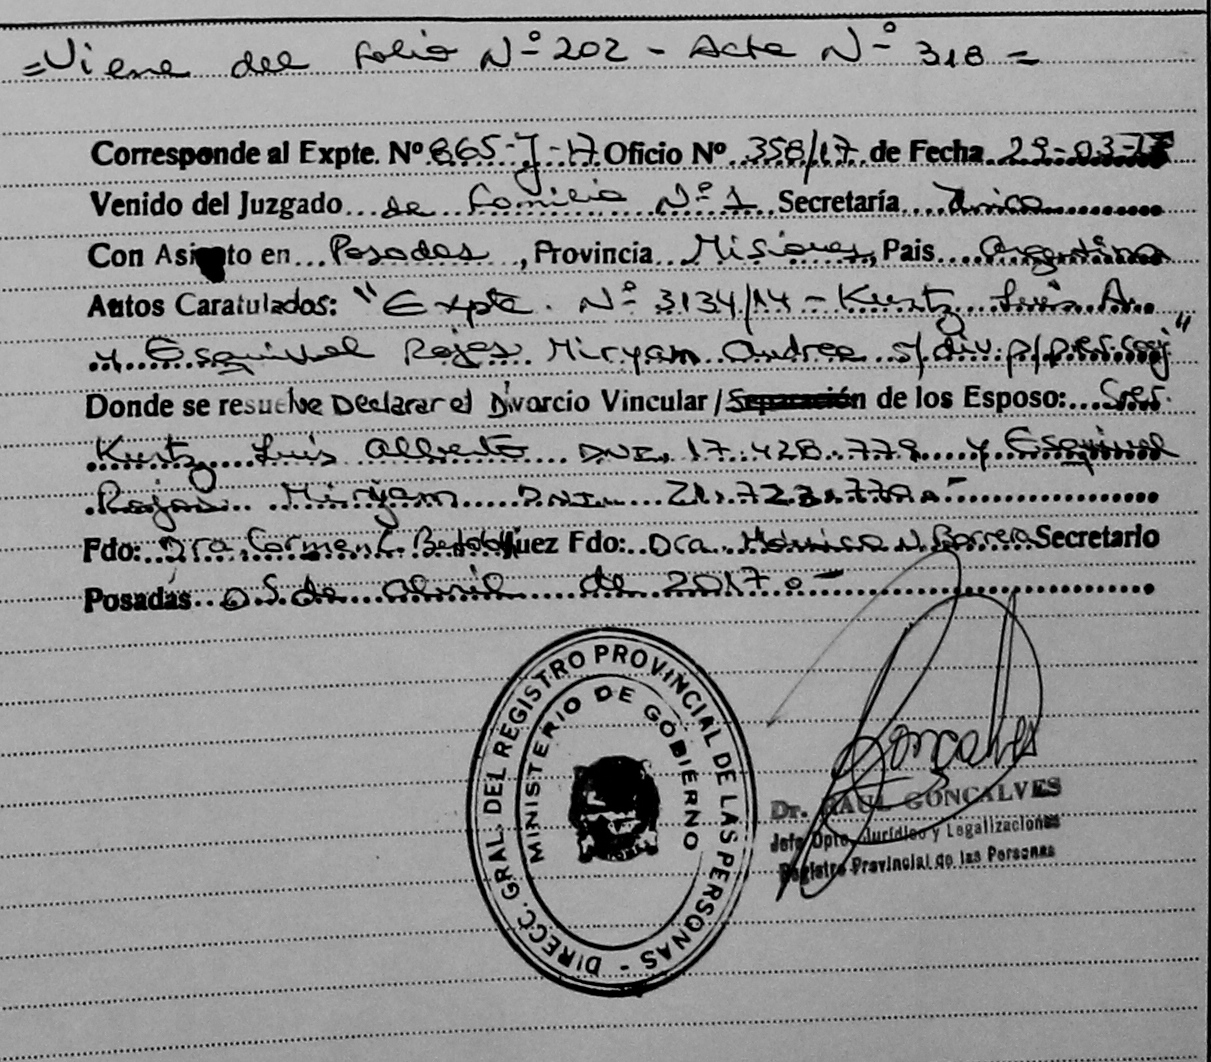 =Viene del folio Nº 202 - Acta Nº 318=
Corresponde al Expte. Nº 865-J-17 Oficio Nº 358/17 de Fecha 29-03-17
Venido del Juzgado de Familia Nº 1 Secretaría Única
Con Asiento en Posadas, Provincia Misiones, Pais Argentina
Autos Caratulados: "Expte. Nº 3134/14 - Kurtz Luis A.
y Esquivel Rojas Miryam Andrea s/div. p/pres. conj"
Donde se resuelve Declarar el Divorcio Vincular / Separación de los Esposo: Sres.
Kurtz Luis Alberto DNI. 17.428.779 y Esquivel
Rojas Miryam D.N.I. 21.723.779.-
Fdo: Dra. Carmen C. Juez Fdo: Dra. Monica N. Barrera Secretario
Posadas 05 de abril de 2017.-
DIRECC. GRAL. DEL REGISTRO PROVINCIAL DE LAS PERSONAS -
MINISTERIO DE GOBIERNO
Gonçalves
Dr. RAUL GONCALVES
Jefe Dpto. Jurídico y Legalizaciones
Registro Provincial de las Personas